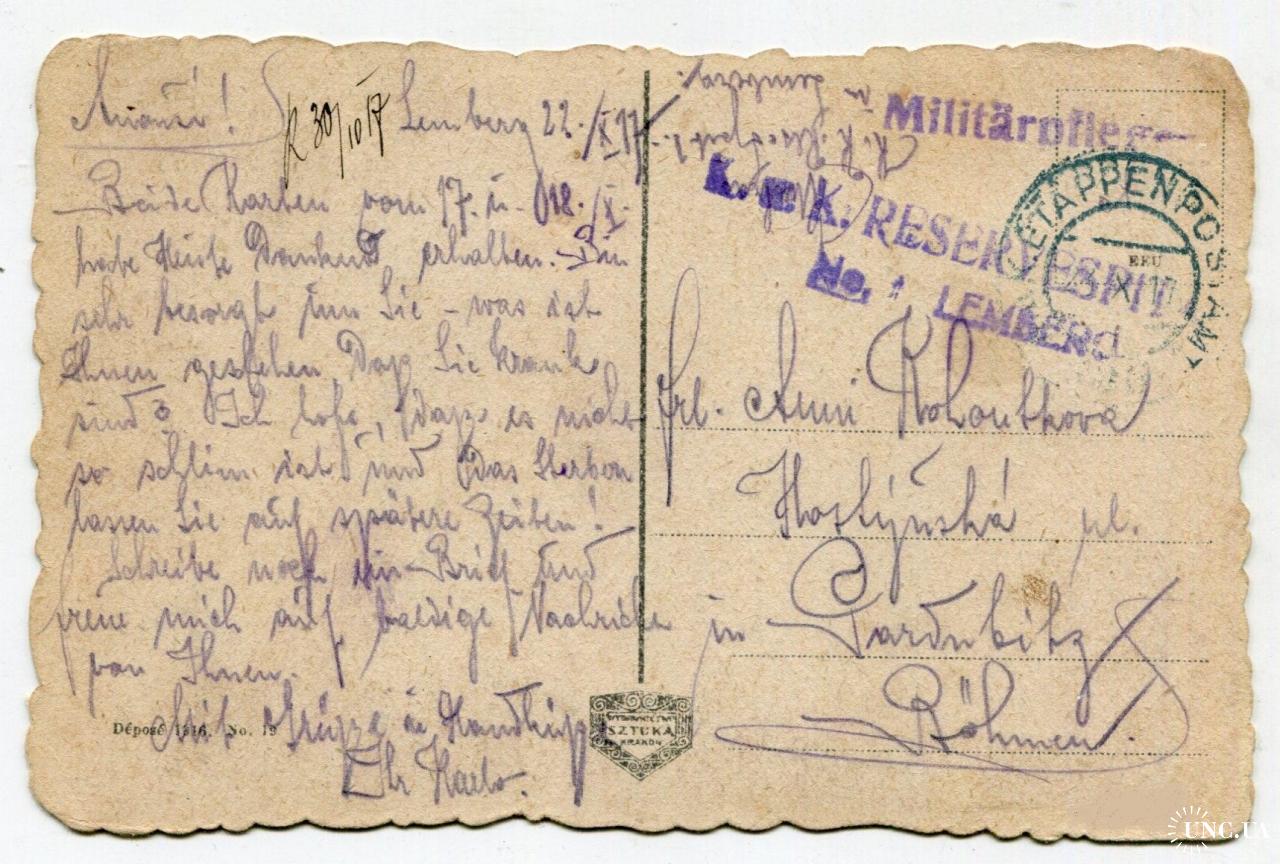 Lemberg 22./X 17.
R 30/10 17
Beide Karten vom 17. u. 18./X.
habe Heute Dankend erhalten. Bin
sehr besorgt um Sie - was ist
Ihnen gesehen Daß Sie krank
sind? Ich hofe, daß es nicht
so schlim ist und das Sterben
lassen Sie auf spätere Zeiten!
Schreibe noch ein Brief und
freue mich auf baldige Nachricht
von Ihnen.
Mit Grüße u. Handkuß
Ihr
Déposé 1916. No. 19
WYDAWNICTWO
SZTUKA
KRAKÓW
Militärpfleg
K. u. K. RESERVESPIT
No. 1 LEMBERG
ETAPPENPOSTAMT
X 17
Frl. Anni Kohoutkova
Hostýnská ul.
in Pardubitz
Böhmen.
UNC.UA